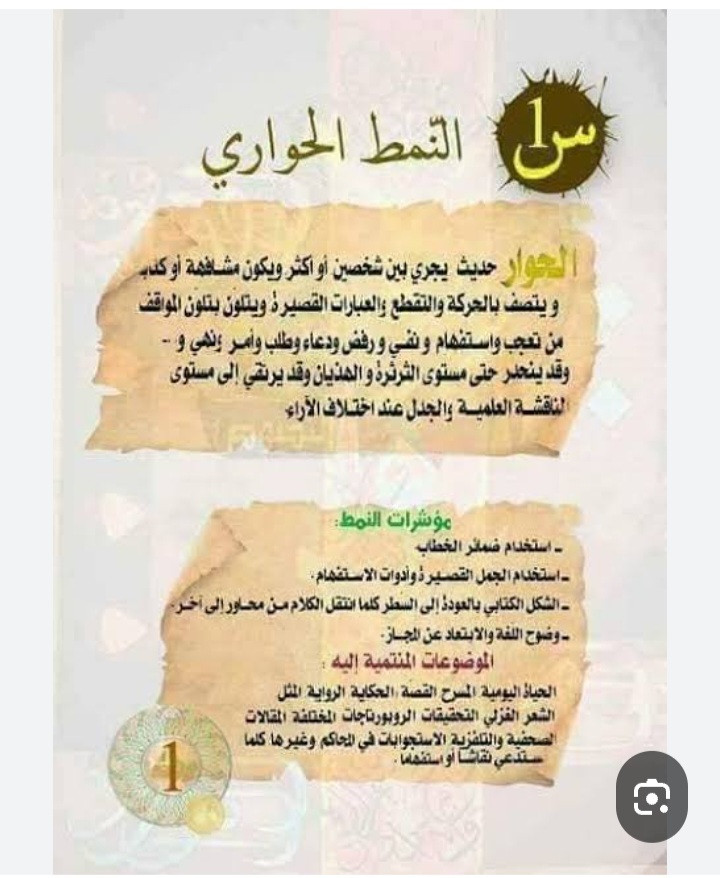 س1
النّمط الحواري
الحوار حديث يجري بين شخصين أو أكثر ويكون مشافهة أو كتاب
ويتصف بالحركة والتقطع والعبارات القصيرة ويتلون بتلون المواقف
من تعجب واستفهام ونفي ورفض ودعاء وطلب وأمر ونهي و --
وقد ينحدر حتى مستوى الثرثرة والهذيان وقد يرتقي إلى مستوى
المناقشة العلمية والجدل عند اختلاف الآراء.
مؤشرات النمط:
- استخدام ضمائر الخطاب.
- استخدام الجمل القصيرة وأدوات الاستفهام.
- الشكل الكتابي بالعودة إلى السطر كلما انتقل الكلام من محاور إلى آخر.
- وضوح اللغة والابتعاد عن المجاز.
الموضوعات المنتمية إليه :
الحياة اليومية المسرح القصة الحكاية الرواية المثل
الشعر الغزلي التحقيقات الروبورتاجات المختلفة المقالات
الصحفية والتلفزية الاستجوابات في المحاكم وغيرها كلما
ستدعي نقاشا أو استفهاما.
1